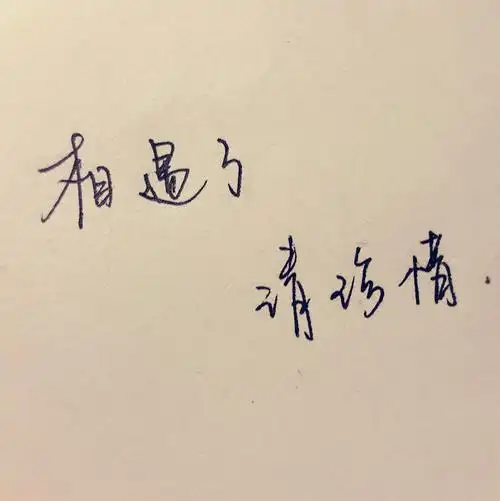 相遇了
请珍惜